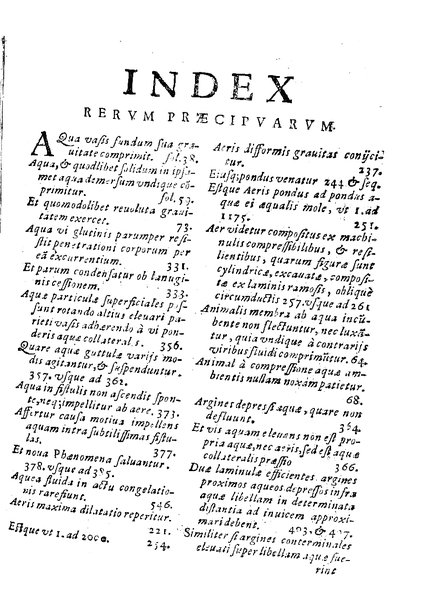 INDEX
RERVM PRÆCIPVARVM.
AQua vasis fundum sua gra-
uitate comprimit. fol. 38.
Aqua, & quodlibet solidum in ipsa-
met aqua demersum vndique cō-
primitur. fol. 59.
Et quomodolibet reuoluta graui-
tatem exercet. 73.
Aqua vi glutinis parumper resi-
stit penetrationi corporum per
eā excurrentium. 331.
Et parum condensatur ob lanugi-
nis cessionem. 333.
Aquæ particulæ superficiales pos-
sunt rotando altius eleuari pa-
rieti vasis adhærendo à vi pon-
deris aquæ collateralis. 356.
Quare aquæ guttulæ varijs mo-
dis agitantur, & suspenduntur.
357. vsque ad 362.
Aqua in fistulis non ascendit spon-
te, neq; impellitur ab aere. 373.
Affertur causa motiua impellens
aquam intra subtilissimas fistu-
las. 377.
Et noua Phænomena saluantur.
378. vsque ad 385.
Aquea fluida in actu congelatio-
nis rarefiunt. 546.
Aeris maxima dilatatio reperitur.
221.
Estque vt 1. ad 2000. 234.
Aeris difformis grauitas conijci-
tur. 237.
Eiusq; pondus venatur 244 & seq.
Estque Aeris pondus ad pondus a-
quæ ei æqualis mole, vt 1. ad
1175. 251.
Aer videtur compositus ex machi-
nulis compressibilibus, & resi-
lientibus, quarum figuræ sunt
cylindricæ, excauatæ, composi-
tæ ex laminis ramosis, obliquè
circumductis 257. vsque ad 261
Animalis membra ab aqua incū-
bente non flectuntur, nec luxā-
tur, quia vndique à contrarijs
viribus fluidi comprimūtur. 64.
Animal à compressione aquæ am-
bientis nullam noxam patietur.
68.
Argines depressi aquæ, quare non
defluunt. 364.
Et vis aquam eleuans non est pro
pria aquæ, nec aeris, sed est aquæ
collateralis pressio 366.
Duæ laminulæ efficientes argines
proximos aqueos depressos infra
aquæ libellam in determinata
distantia ad inuicem approxi-
mari debent. 403, & 407.
Similiter si argines conterminales
eleuati super libellam aquæ fue-
rint